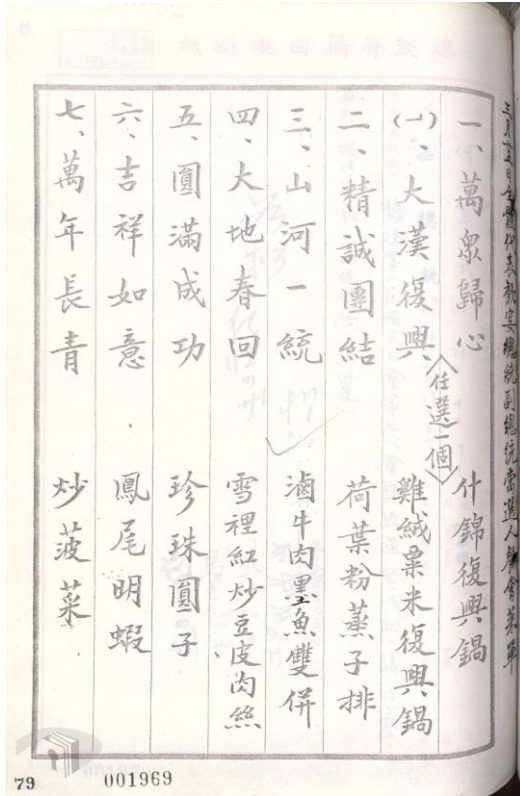 三月廿五日全體代表歡宴總統副總統當選人聚會菜單
一、萬眾歸心 什錦復興鍋
(一)、大漢復興〈任選一個〉雞絨粟米復興鍋
二、精誠團結 荷葉粉蒸子排
三、山河一統 滷牛肉墨魚雙併
四、大地春回 雪裡紅炒豆皮肉絲
五、圓滿成功 珍珠圓子
六、吉祥如意 鳳尾明蝦
七、萬年長青 炒菠菜
79
001969